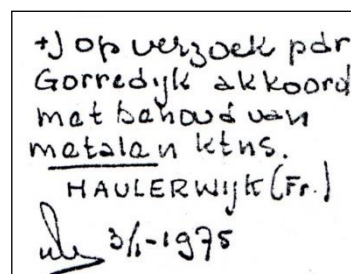 +) op verzoek pdr
Gorredijk akkoord
met behoud van
metalen ktns.
HAULERWIJK (Fr.)
3/1-1975